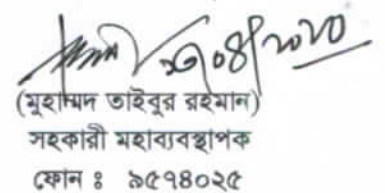 (মুহাম্মদ তাইবুর রহমান)
সহকারী মহাব্যবস্থাপক
ফোন ঃ ৯৫৭৪০২৫